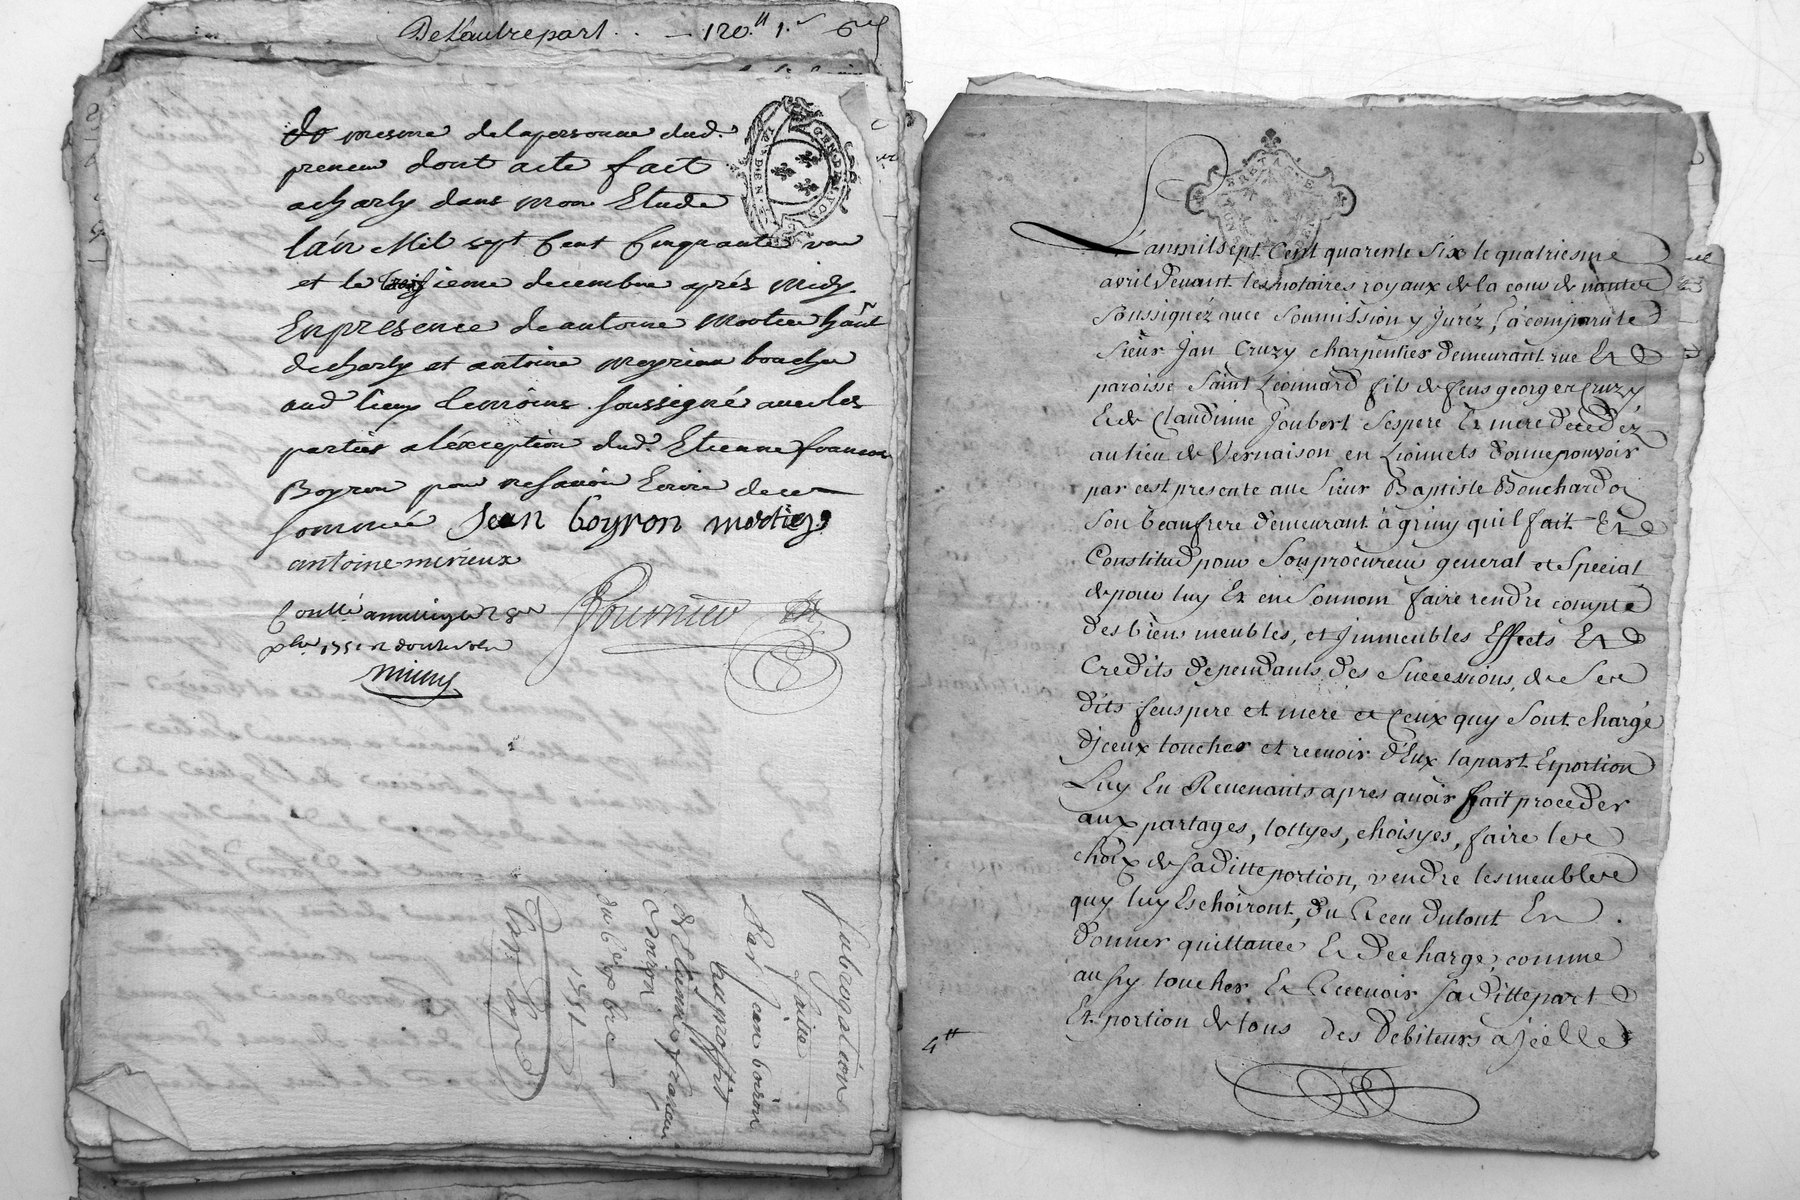 De Lautrepart . . — 120.ᵗᵗ 1.ˢ 6ᵈ
de mesme de la personne dud.
preneur dont acte fait
a charly dans mon Etude
lan Mil sept Cent Cinquante un
et le troisieme decembre aprés midy.
En presence de antoine
de charly et antoine meyrieux boucher
aud lieux temoins soussigné avec les
parties a l'exception dud. Etienne francois
Boyron pour ne savoir Ecrire de ce
sommé Jean boyron mortier
antoine mirieux
Fournier
GEN. DE LYON
Subrogation
faitte
Par Jean boiron
au proffit
d'Etienne francois
boiron
1751
BRETAGNE
L'an mil sept Cent quarente Six le quatriesme
avril devant les notaires royaux de la cour de nantes
Soussignéz avec Soumission y Juréz, a comparu le
Sieur Jan Cruzy charpentier demeurant rue Et
paroisse Saint Leonnard fils de feus george Cruzy
Et de Claudinne Joubert Ses pere Et mere decedéz
au lieu de Vernaison en Lionnets donne pouvoir
par cest presente au Sieur Baptiste Bouchardoi
Son beaufrere demeurant à griny quil fait Et
Constitud pour Son procureur general et Special
de pour luy Et en Son nom faire rendre compte
des biens meubles, et Jmmeubles Effects Et
Credits dependants des Successions, de Ses
dits feus pere et mere et Ceux quy Sont chargé
djceux toucher et recevoir d'Eux la part Et portion
Luy En Revenants apres avoir fait proceder
aux partages, lottyes, choisyes, faire le
choix de Saditte portion, vendre les meubles
quy luy Eschoiront, du Receu du tout En
donner quittance Et decharge, comme
aussy toucher Et Recevoir Saditte part
Et portion de tous des debiteurs a Jcelle
4ᵗᵗ